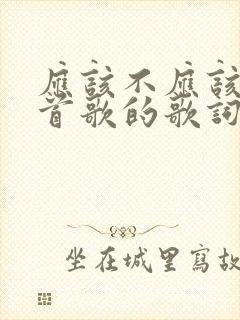 應該不應該
首歌的歌詞
坐在城里寫故